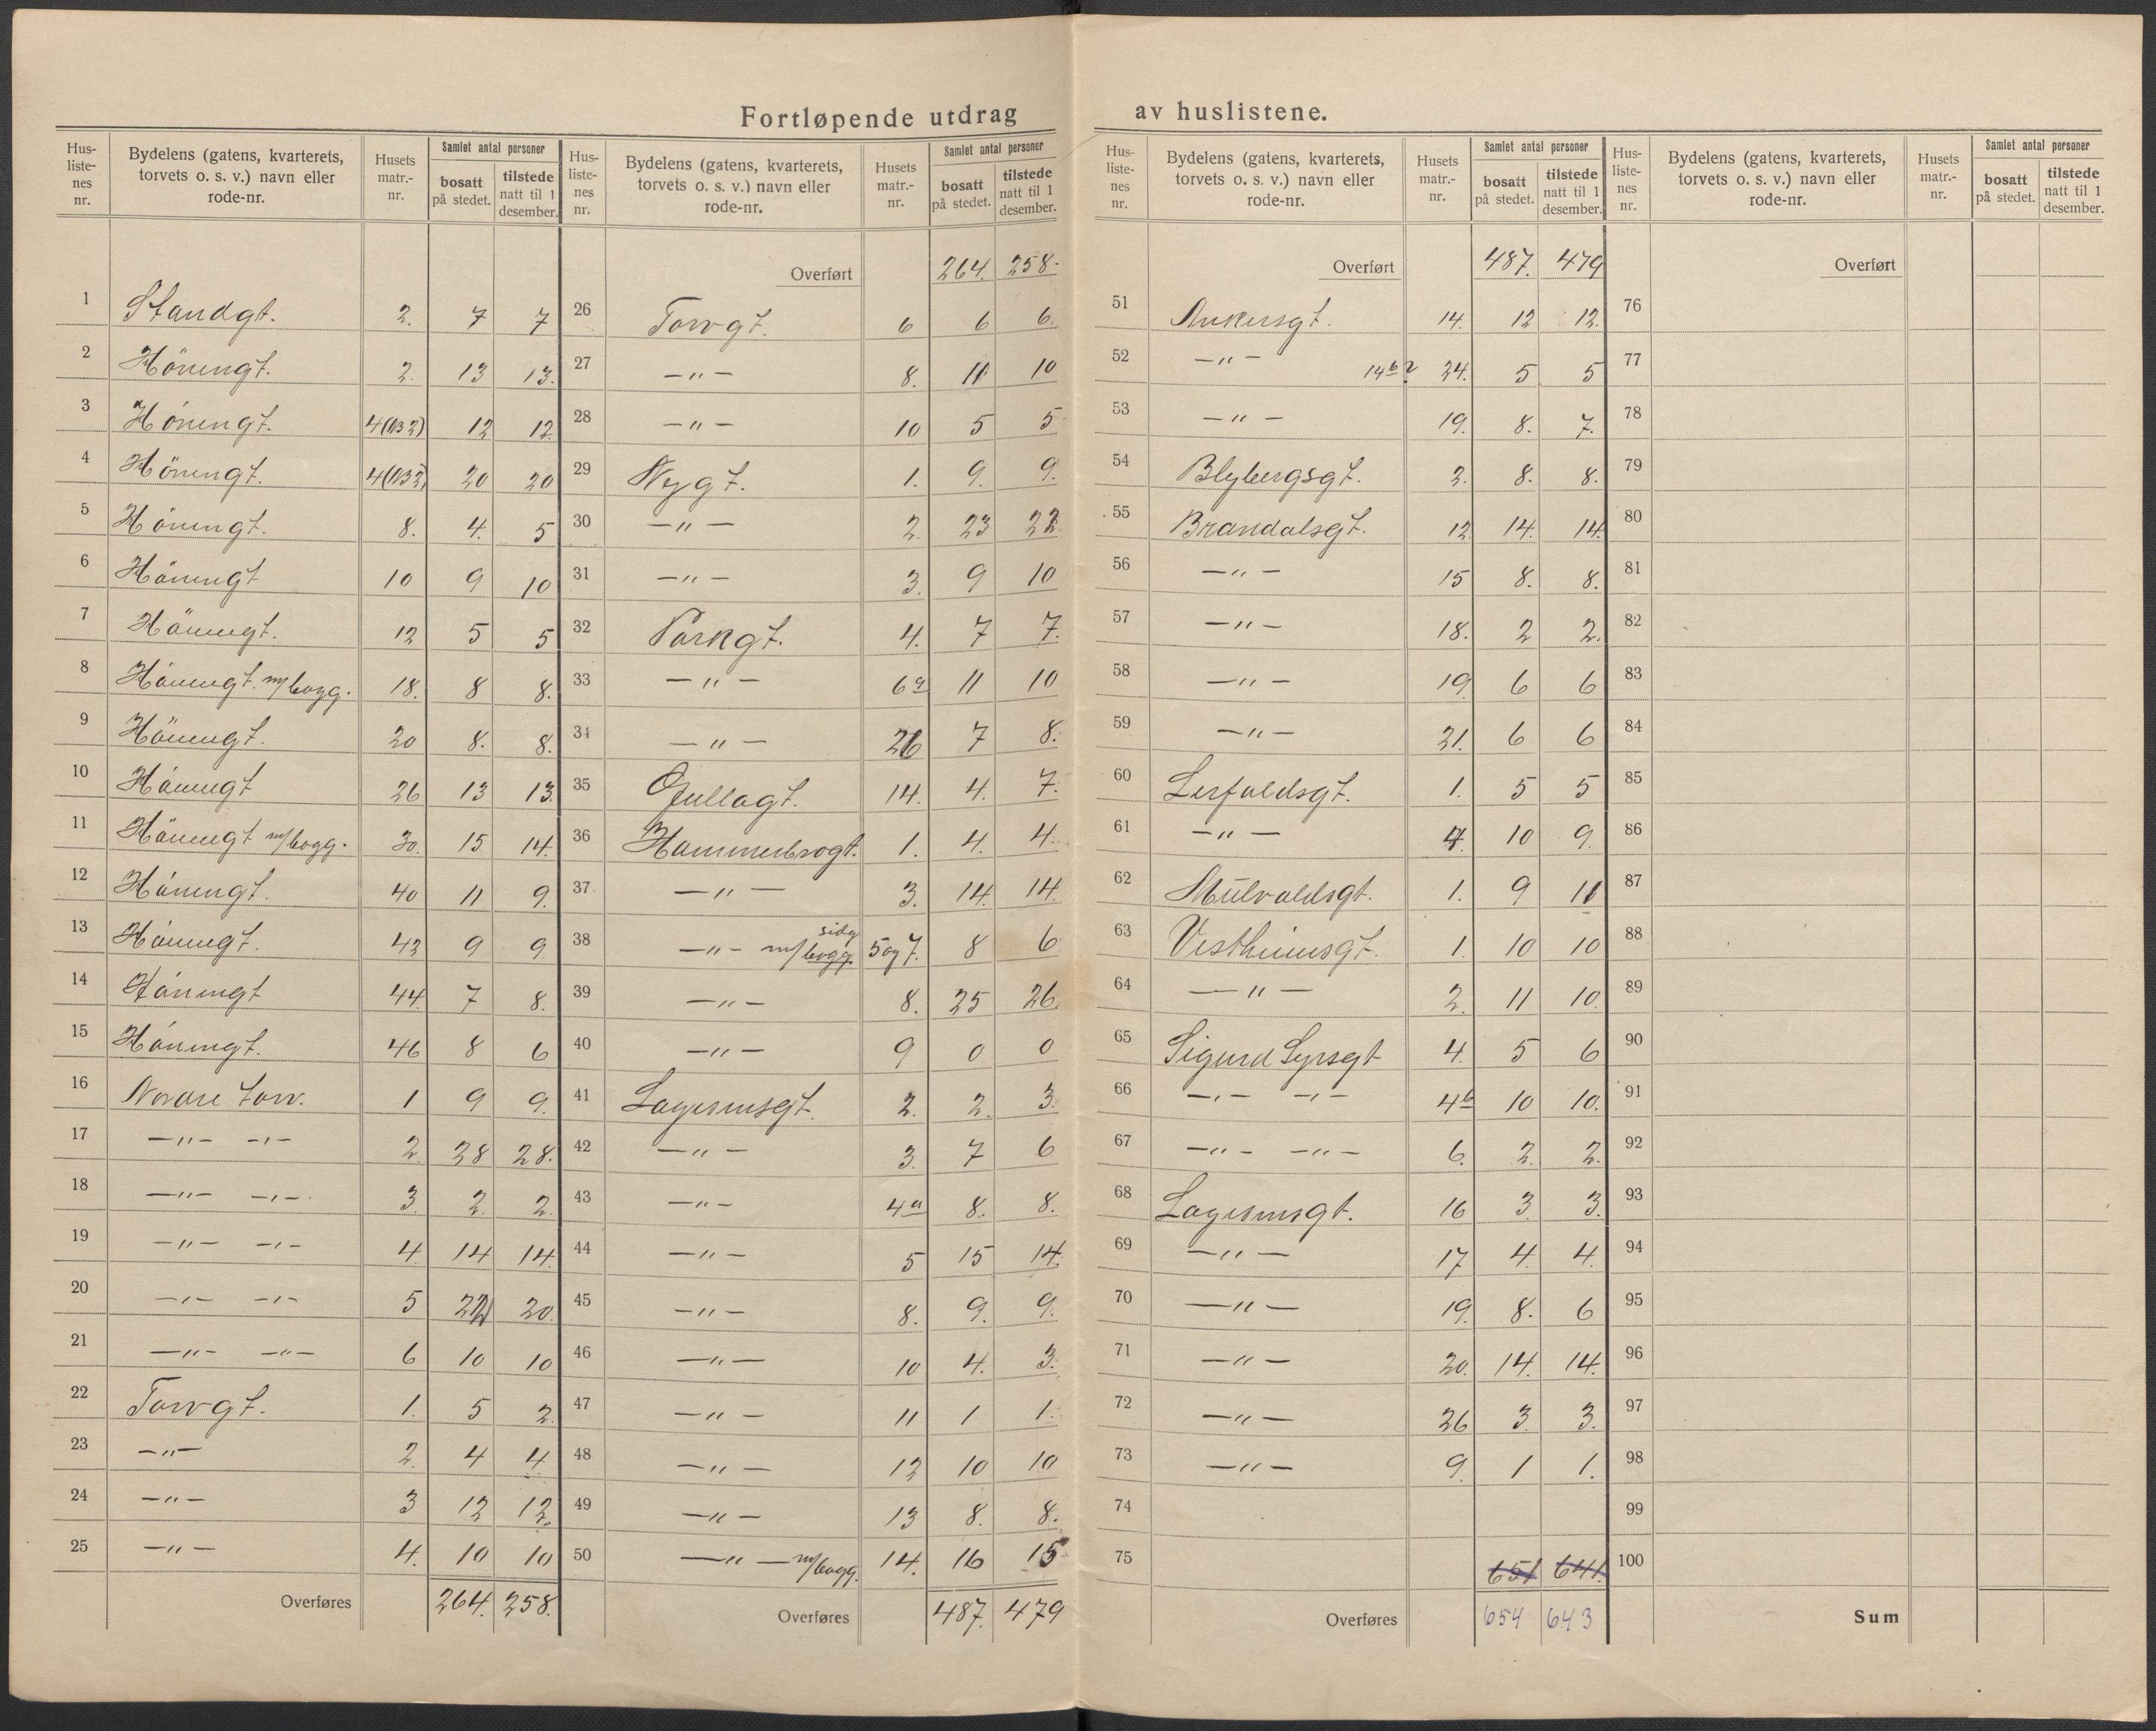 Fortløpende utdrag av huslistene.
Hus-listenes nr. | Bydelens (gatens, kvarterets, torvets o. s. v.) navn eller rode-nr. | Husets matr.-nr. | Samlet antal personer bosatt på stedet. | tilstede natt til 1 desember.
1 Standgt. 2. 7 7
2 Hønengt. 2. 13 13.
3 Hønengt. 4(1132) 12 12.
4 Hønengt. 20 20
5 Hønengt. 8. 4. 5
6 Hønengt 10 9 10
7 Hønengt. 12 5 5
8 Hønengt. m/bogg. 18. 8 8.
9 Hønengt. 20 8. 8.
10 Hønengt 26 13 13.
11 Hønengt m/bogg. 30. 15 14.
12 Hønengt. 40 11 9.
13 Hønengt. 42 9 9
14 Hønengt 44. 7 8.
15 Hønengt. 46 8 6
16 Nordre torv. 1 9 9.
17 —"— —"— 2. 28 28.
18 —"— —"— 3. 2. 2.
19 —"— —"— 4. 14 14.
20 —"— —"— 5 22 20.
21 —"— —"— 6 10 10
22 Torvgt. 1. 5 2.
23 —"— 2. 4 4
24 —"— 3 12 12.
25 —"— 4. 10 10
Overføres 264. 258.
Hus-listenes nr. | Bydelens (gatens, kvarterets, torvets o. s. v.) navn eller rode-nr. | Husets matr.-nr. | Samlet antal personer bosatt på stedet. | tilstede natt til 1 desember.
Overført 264. 258.
26 Torvgt. 6 6 6.
27 —"— 8. 11 10
28 —"— 10 5 5
29 Nygt. 1. 9. 9.
30 —"— 2. 23 22.
31 —"— 3. 9 10
32 Parkgt. 4. 7 7.
33 —"— 6a 11 10
34 —"— 26 7 8.
35 Gullagt. 14. 4. 7.
36 Hammerbrogt. 1. 4. 4.
37 —"— 3. 14. 14.
38 —"— m/sidebygg. 5 og 7. 8 6
39 —"— 8. 25 26.
40 —"— 9 0 0
41 Lagesensgt. 2. 2. 3.
42 —"— 3. 7 6
43 —"— 4a 8. 8.
44 —"— 5 15 14.
45 —"— 8. 9. 9.
46 —"— 10 4. 3.
47 —"— 11 1 1.
48 —"— 12 10 10
49 —"— 13 8. 8.
50 —"— m/bogg. 14. 16 15
Overføres 487. 479
Hus-listenes nr. | Bydelens (gatens, kvarterets, torvets o. s. v.) navn eller rode-nr. | Husets matr.-nr. | Samlet antal personer bosatt på stedet. | tilstede natt til 1 desember.
Overført 487. 479
51 Ankersgt. 14. 12 12.
52 —"— 14b? 24. 5 5
53 —"— 19. 8. 7.
54 Blybergsgt. 2. 8. 8.
55 Brandalsgt. 12 14. 14.
56 —"— 15 8. 8.
57 —"— 18. 2 2.
58 —"— 19. 6 6
59 —"— 21. 6 6
60 Lerfaldsgt. 1. 5 5
61 —"— 4. 10 9.
62 1. 9 11
63 Vestheimsgt. 1. 10 10
64 —"— 2. 11 10.
65 Sigurd Syrsgt 4. 5 6
66 —"— —"— 4b 10 10.
67 —"— —"— 6. 2. 2.
68 Lagesensgt. 16 3. 3.
69 —"— 17 4. 4.
70 —"— 19. 8. 6
71 —"— 20. 14. 14.
72 —"— 26 3 3.
73 —"— 9. 1 1.
74
75 651 641.
Overføres 654 643
Hus-listenes nr. | Bydelens (gatens, kvarterets, torvets o. s. v.) navn eller rode-nr. | Husets matr.-nr. | Samlet antal personer bosatt på stedet. | tilstede natt til 1 desember.
Overført
76
77
78
79
80
81
82
83
84
85
86
87
88
89
90
91
92
93
94
95
96
97
98
99
100
Sum